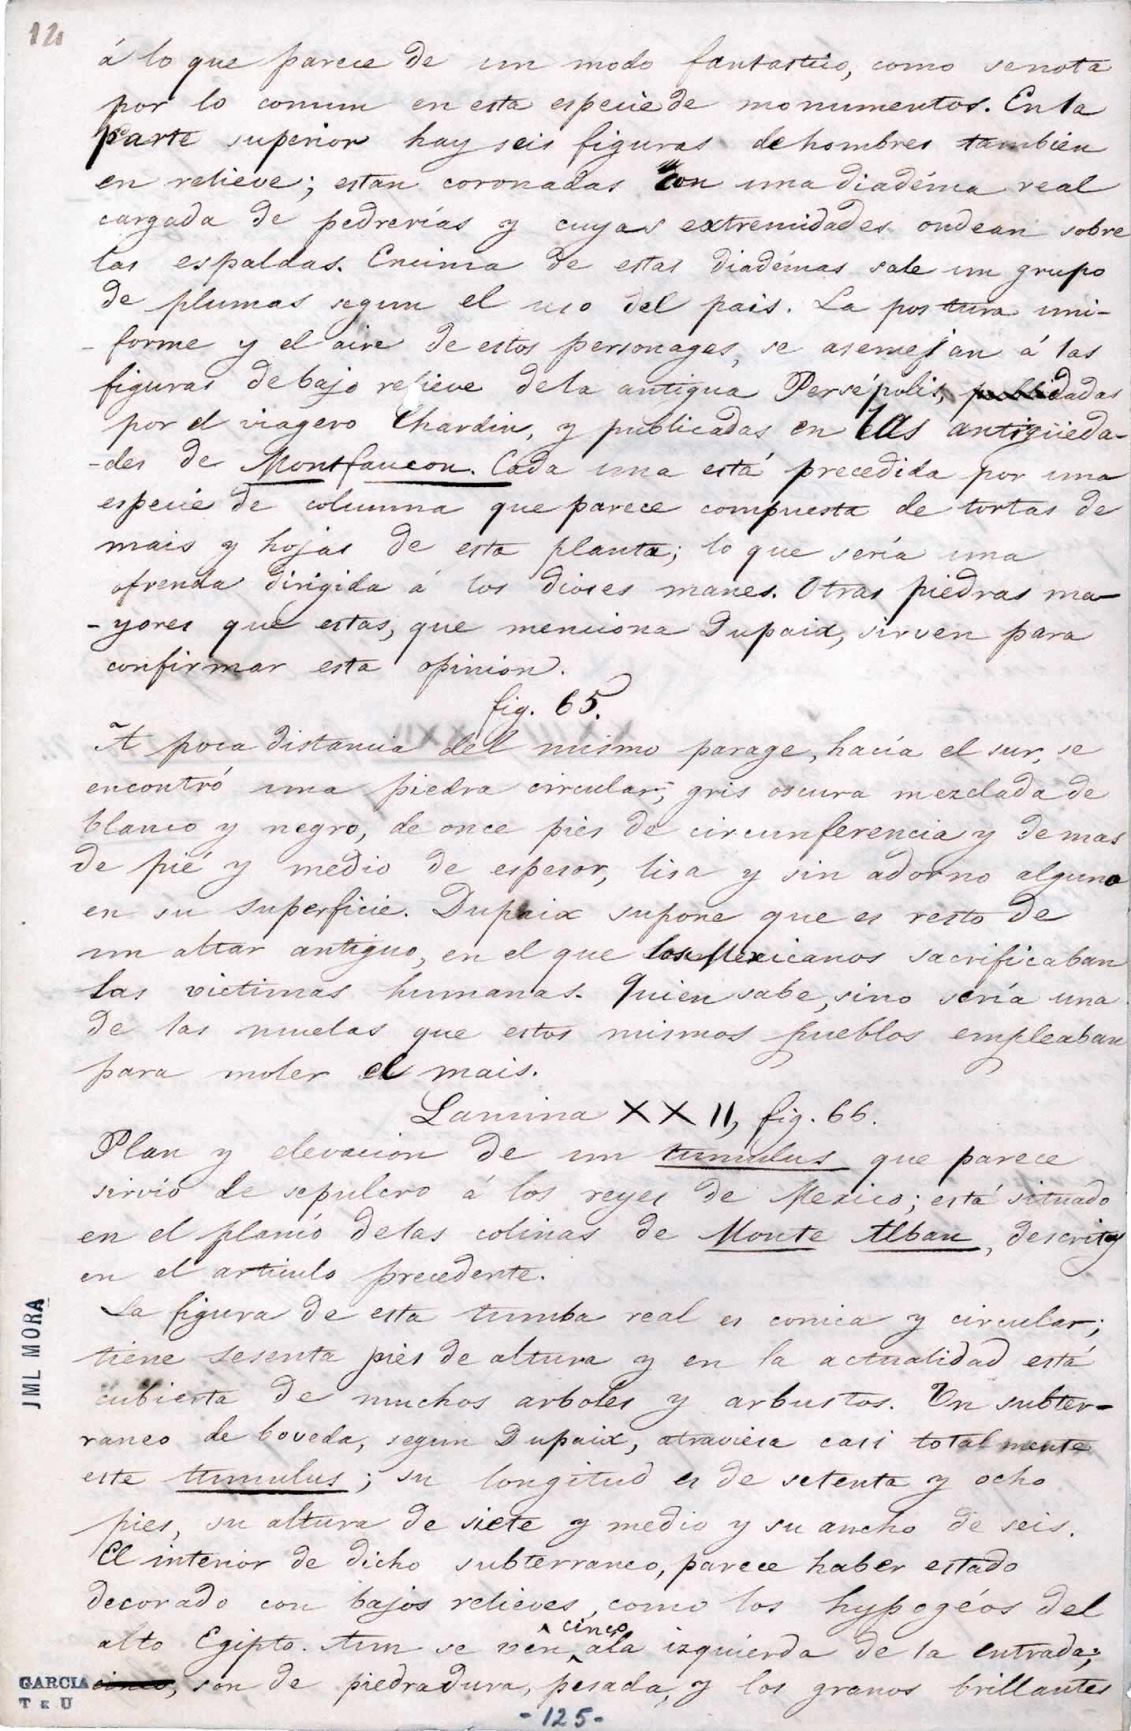 12
á lo que parece de un modo fantastico, como se nota
por lo comun en esta especie de monumentos. En la
parte superior hay seis figuras de hombres tambien
en relieve; estan coronadas con una diadéma real
cargada de pedrerías y cuyas extremidades ondean sobre
las espaldas. Encima de estas diadémas sale un grupo
de plumas segun el uso del pais. La postura uni-
-forme y el aire de estos personages, se asemejan á las
figuras de bajo relieve de la antigua Persépolis, dadas
por el viagero Chardin, y publicadas en las antigüeda-
-des de Montfaucon. Cada una está precedida por una
especie de columna que parece compuesta de tortas de
mais y hojas de esta planta; lo que sería una
ofrenda dirigida á los dioses manes. Otras piedras ma-
-yores que estas, que menciona Dupaix, sirven para
confirmar esta opinion.
fig. 65.
A poca distancia del mismo parage, hacía el sur, se
encontró una piedra circular, gris oscura mezclada de
blanco y negro, de once piés de circunferencia y de mas
de pié y medio de espesor, lisa y sin adorno alguno
en su superficie. Dupaix supone que es resto de
un altar antiguo, en el que los Mexicanos sacrificaban
las victimas humanas. Quien sabe, sino sería una
de las muelas que estos mismos pueblos empleaban
para moler el mais.
Lamina XXII, fig. 66.
Plan y elevacion de un tumulus que parece
sirvió de sepulcro á los reyes de Mexico; está situado
en el planío de las colinas de Monte Alban, descrito
en el articulo precedente.
La figura de esta tumba real es conica y circular;
tiene sesenta piés de altura y en la actualidad está
cubierta de muchos arboles y arbustos. Un subter-
raneo de boveda, segun Dupaix, atraviesa casi totalmente
este tumulus; su longitud es de setenta y ocho
pies, su altura de siete y medio y su ancho de seis.
El interior de dicho subterraneo, parece haber estado
decorado con bajos relieves, como los hypogéos del
alto Egipto. Aun se ven cinco a la izquierda de la entrada;
cinco, son de piedra dura, pesada, y los granos brillantes
-125-
JML MORA
GARCIA
T E U